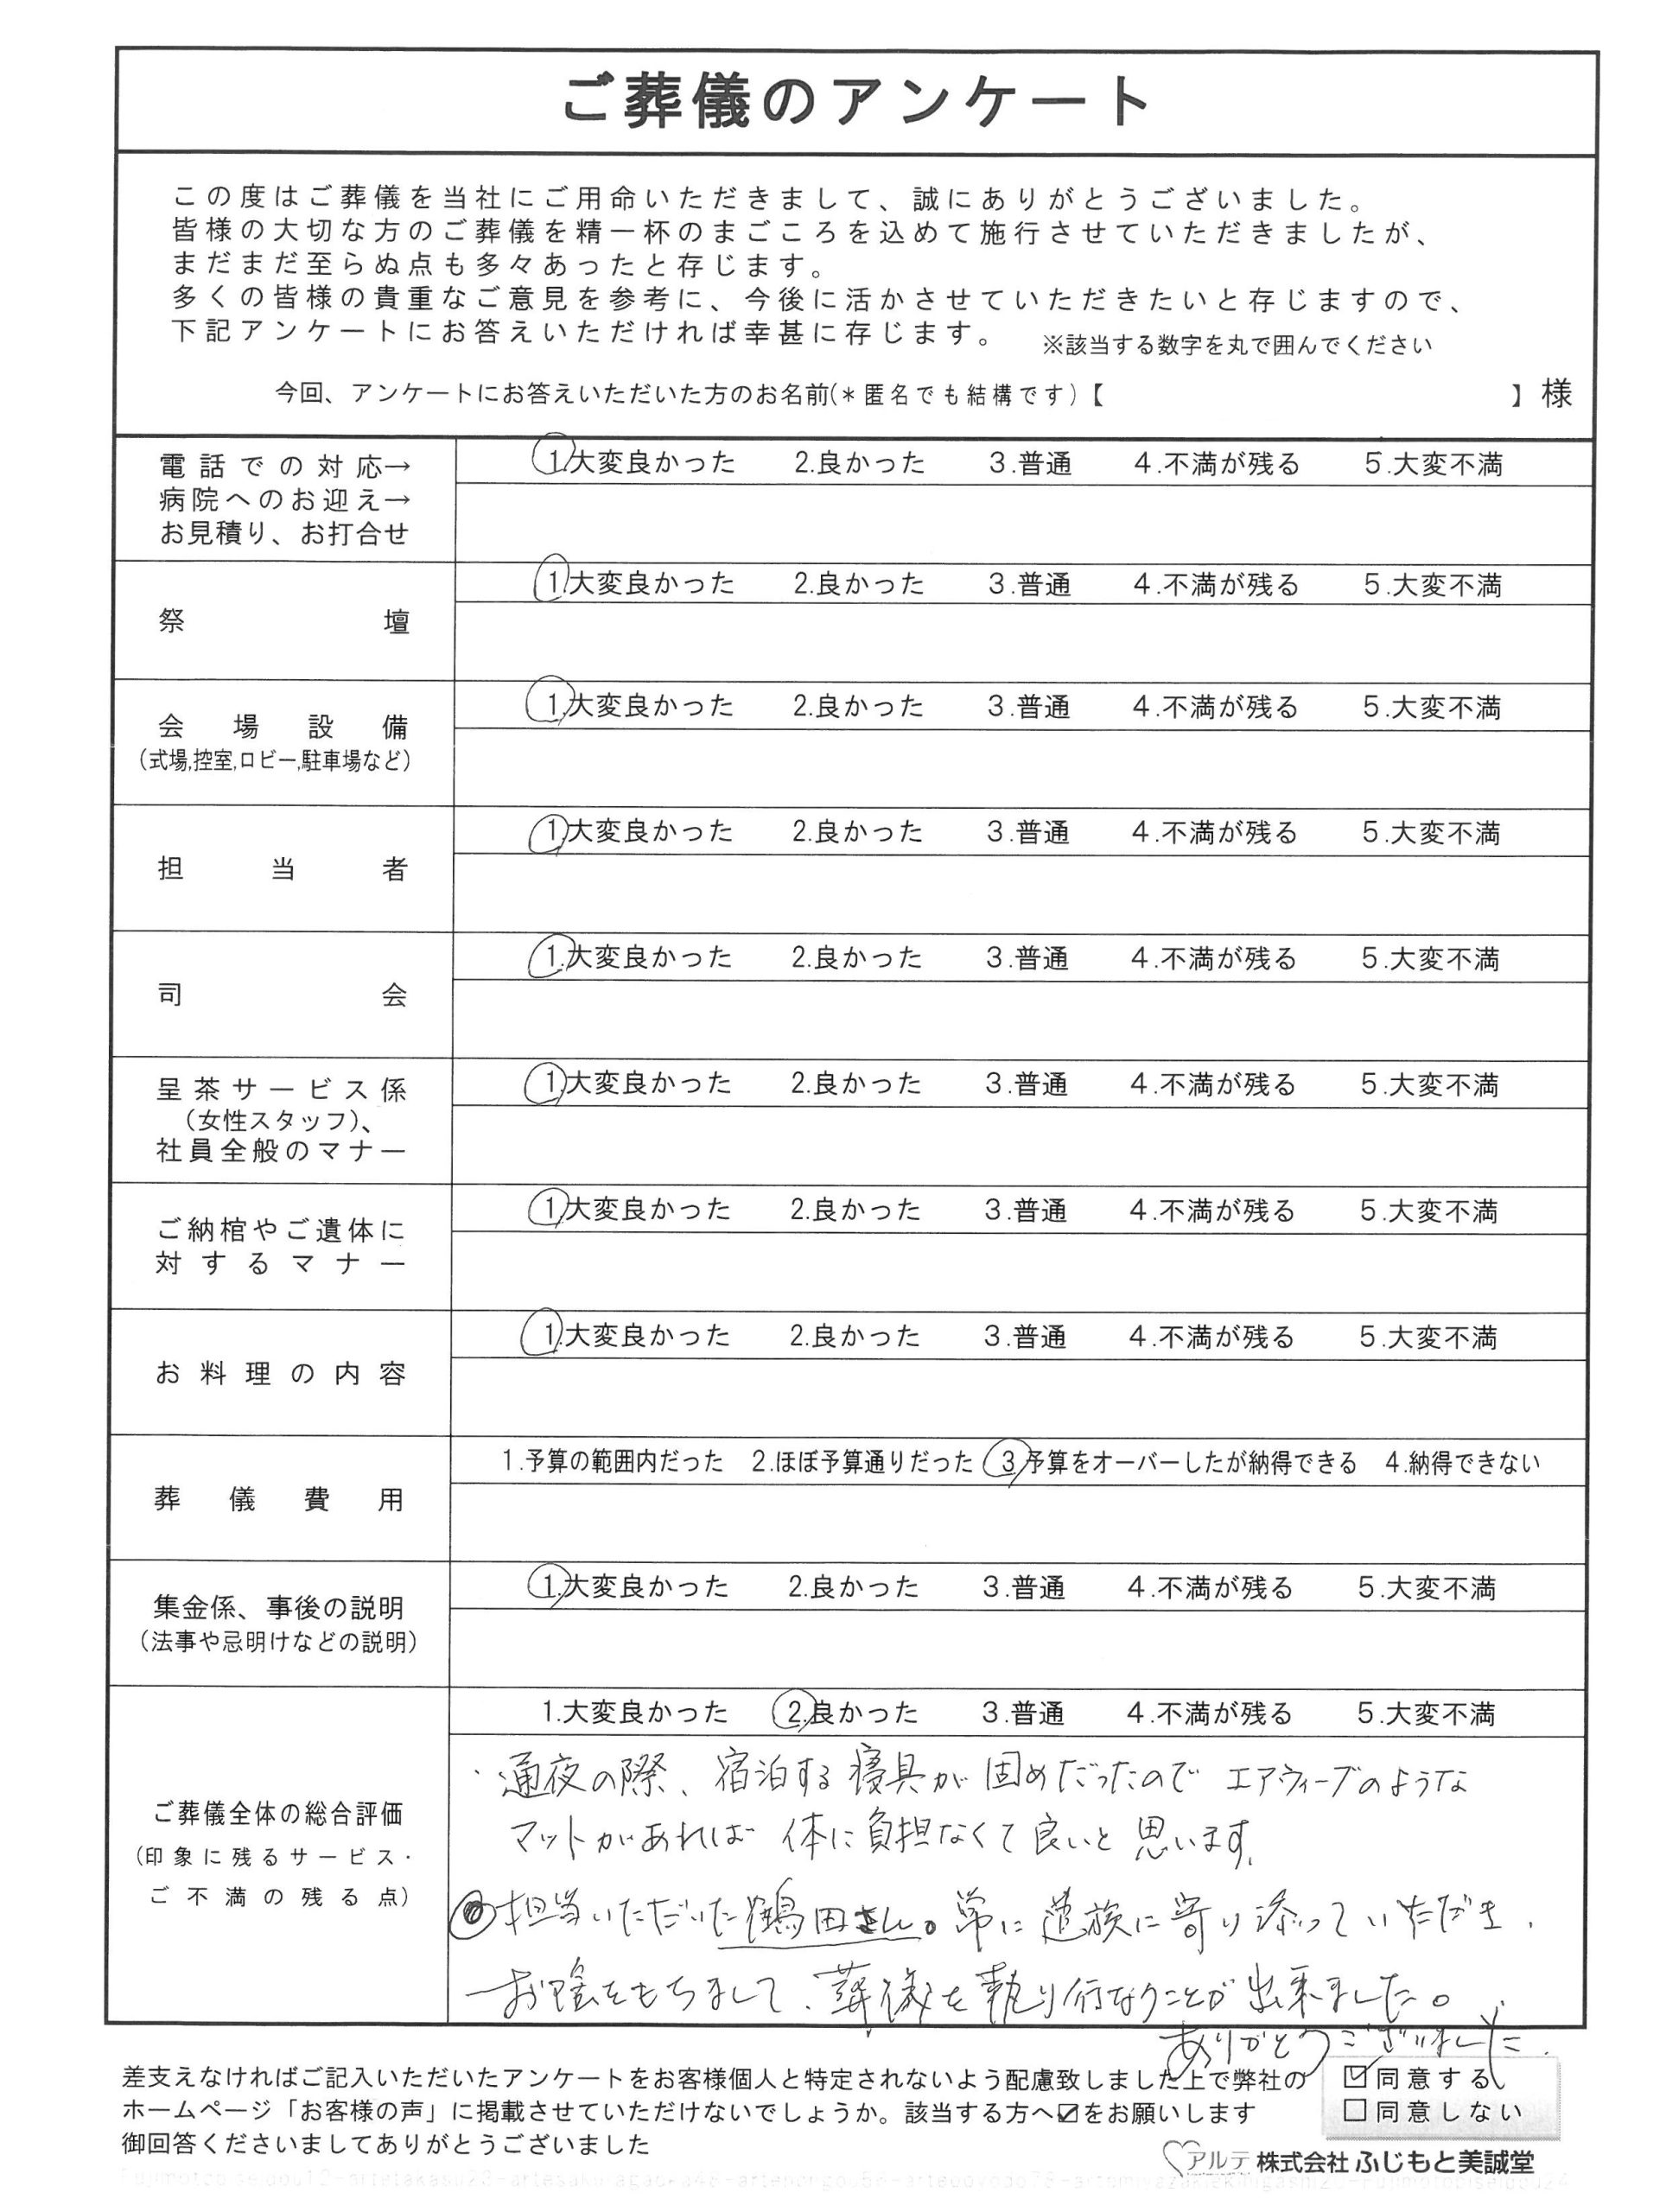 ご葬儀のアンケート
この度はご葬儀を当社にご用命いただきまして、誠にありがとうございました。
皆様の大切な方のご葬儀を精一杯のまごころを込めて施行させていただきましたが、
まだまだ至らぬ点も多々あったと存じます。
多くの皆様の貴重なご意見を参考に、今後に活かさせていただきたいと存じますので、
下記アンケートにお答えいただければ幸甚に存じます。 ※該当する数字を丸で囲んでください
今回、アンケートにお答えいただいた方のお名前(*匿名でも結構です)【 】様
電話での対応→
病院へのお迎え→
お見積り、お打合せ
1.大変良かった 2.良かった 3.普通 4.不満が残る 5.大変不満
祭壇
1.大変良かった 2.良かった 3.普通 4.不満が残る 5.大変不満
会場設備
(式場,控室,ロビー,駐車場など)
1.大変良かった 2.良かった 3.普通 4.不満が残る 5.大変不満
担当者
1.大変良かった 2.良かった 3.普通 4.不満が残る 5.大変不満
司会
1.大変良かった 2.良かった 3.普通 4.不満が残る 5.大変不満
呈茶サービス係
(女性スタッフ)、
社員全般のマナー
1.大変良かった 2.良かった 3.普通 4.不満が残る 5.大変不満
ご納棺やご遺体に
対するマナー
1.大変良かった 2.良かった 3.普通 4.不満が残る 5.大変不満
お料理の内容
1.大変良かった 2.良かった 3.普通 4.不満が残る 5.大変不満
葬儀費用
1.予算の範囲内だった 2.ほぼ予算通りだった 3.予算をオーバーしたが納得できる 4.納得できない
集金係、事後の説明
(法事や忌明けなどの説明)
1.大変良かった 2.良かった 3.普通 4.不満が残る 5.大変不満
ご葬儀全体の総合評価
(印象に残るサービス・
ご不満の残る点)
1.大変良かった 2.良かった 3.普通 4.不満が残る 5.大変不満
・通夜の際、宿泊する寝具が固めだったのでエアウィーブのような
マットがあれば 体に負担なくて良いと思います。
◎担当いただいた鶴田さん。常に遺族に寄り添っていただき、
お陰をもちまして、葬儀を執り行なうことが出来ました。
ありがとうございました。
差支えなければご記入いただいたアンケートをお客様個人と特定されないよう配慮致しました上で弊社の
ホームページ「お客様の声」に掲載させていただけないでしょうか。該当する方へ☑をお願いします
御回答くださいましてありがとうございました
☑同意する
□同意しない
アルテ 株式会社 ふじもと美誠堂